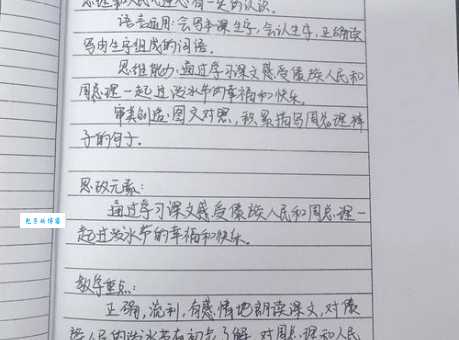 总理和人民心连心有一定的认识。
语言运用：会写本课生字，会认生字，正确读
写由生字组成的词语。
思维能力：通过学习课文感受傣族人民和
周总理一起过泼水节的幸福和快乐。
审美创造：图文对照，积累描写周总理样
子的句子。
思政元素：
通过学习课文感受傣族人民和周总理一
起过泼水节的幸福和快乐。
包子的博客
教学重点：
正确，流利，有感情地朗读课文，对傣
族人民的泼水节有初步了解，对周总理和人民